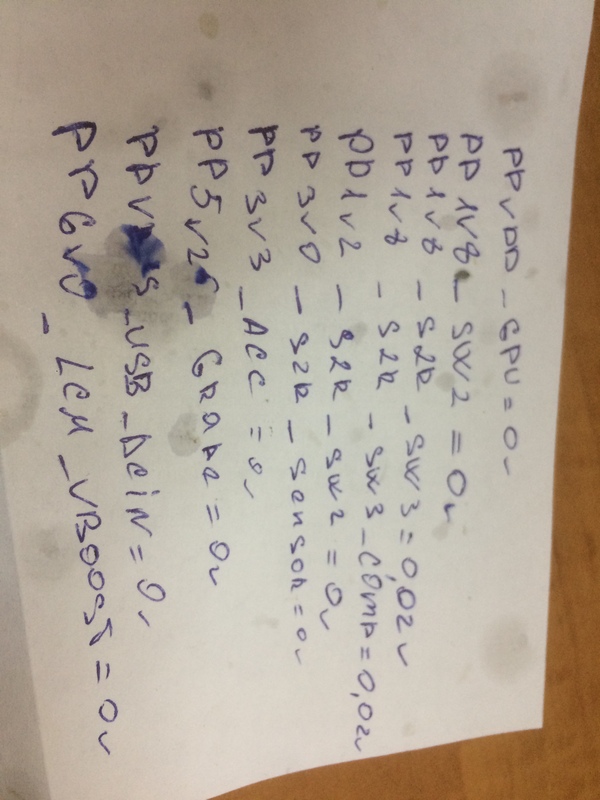 PPVDD - GPU = 0v
PP 1v8 - SW2 = 0v
PP1v8 - S2R - SW3 = 0,02v
PP1v8 - S2R - SW3 - COMP = 0,02v
PP1v2 - S2R - SW2 = 0v
PP3v0 - S2R - SENSOR = 0v
PP3v3 _ ACC = 0v
PP5v25 - GRAPE = 0v
PPVBUS _ USB _ DCIN = 0v
PP6v0 - LCM _ VBOOST = 0v